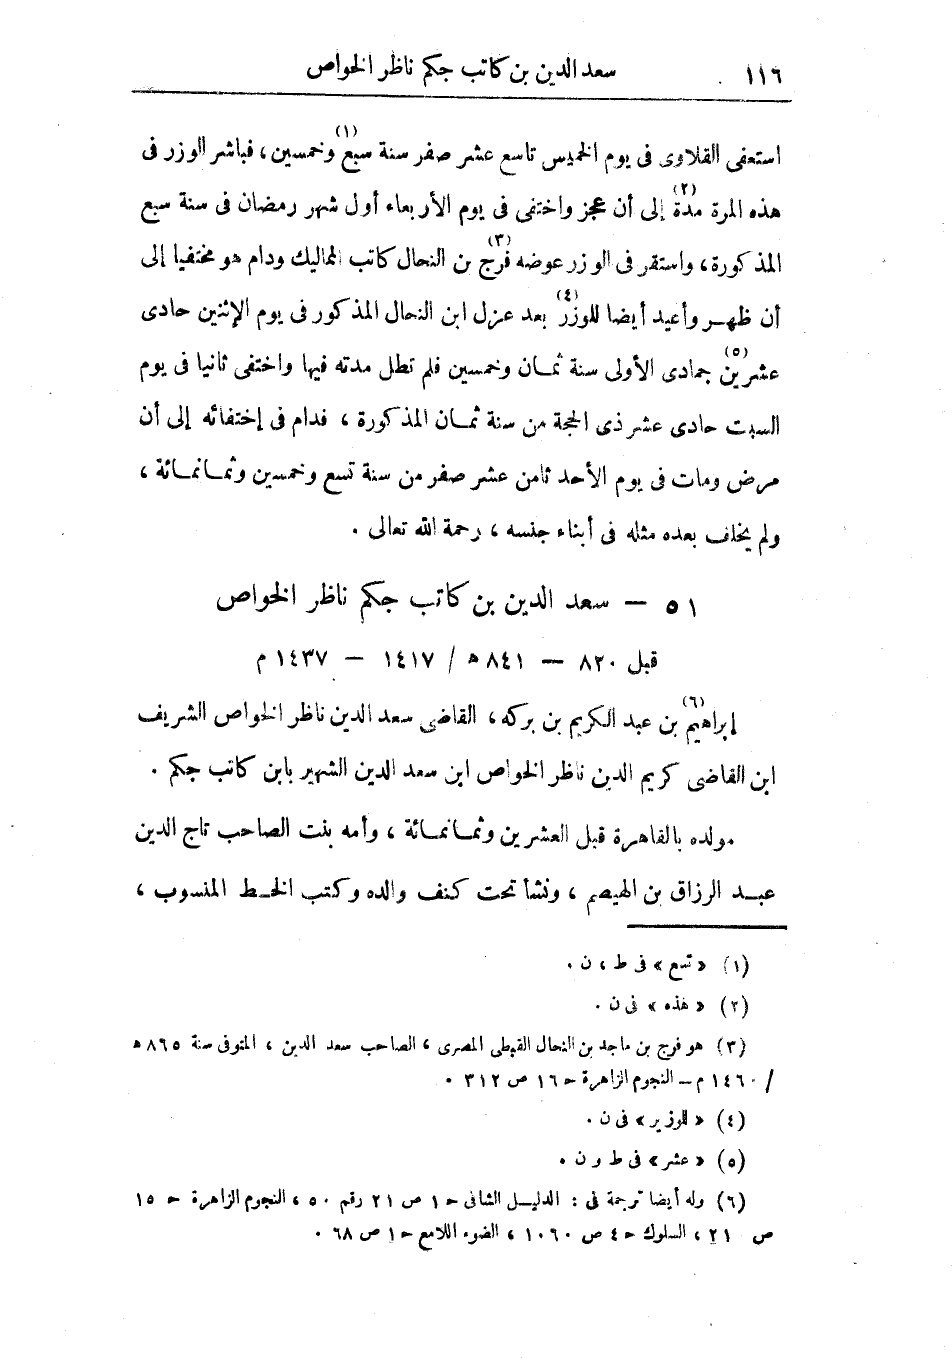 ١١٦ سعد الدين بن كاتب جكم ناظر الخواص
استعفى القلاوى فى يوم الخميس تاسع عشر صفر سنة سبع (١) وخمسين ، فباشر الوزر فى
هذه المرة مدة (٢) إلى أن عجز واختفى فى يوم الأربعاء أول شهر رمضان فى سنة سبع
المذكورة ، واستقر فى الوزر عوضه فرج (٣) بن النحال كاتب المماليك ودام هو مختفيا إلى
أن ظهر وأعيد أيضا للوزر (٤) بعد عزل ابن النحال المذكور فى يوم الإثنين حادى
عشرين (٥) جمادى الأولى سنة ثمان وخمسين فلم تطل مدته فيها واختفى ثانيا فى يوم
السبت حادى عشر ذى الحجة من سنة ثمان المذكورة ، فدام فى إختفائه إلى أن
مرض ومات فى يوم الأحد ثامن عشر صفر من سنة تسع وخمسين وثمانمائة ،
ولم يخلف بعده مثله فى أبناء جنسه ، رحمة الله تعالى .
٥١ – سعد الدين بن كاتب جكم ناظر الخواص
قبل ٨٢٠ – ٨٤١ ه / ١٤١٧ – ١٤٣٧ م
إبراهيم (٦) بن عبد الكريم بن بركه ، القاضى سعد الدين ناظر الخواص الشريف
ابن القاضى كريم الدين ناظر الخواص ابن سعد الدين الشهير بابن كاتب جكم .
مولده بالقاهرة قبل العشرين وثمانمائة ، وأمه بنت الصاحب تاج الدين
عبد الرزاق بن الهيصم ، ونشأ تحت كنف والده وكتب الخط المنسوب ،
(١) « تسع » فى ط ، ن .
(٢) « هذه » فى ن .
(٣) هو فرج بن ماجد بن النحال القبطى المصرى ، الصاحب سعد الدين ، المتوفى سنة ٨٦٥ ه
/ ١٤٦٠ م – النجوم الزاهرة ج ١٦ ص ٣١٢ .
(٤) « للوزير » فى ن .
(٥) « عشر » فى ط و ن .
(٦) وله أيضا ترجمة فى : الدليل الشافى ج ١ ص ٢١ رقم ٥٠ ، النجوم الزاهرة ج ١٥
ص ٢١ ، السلوك ج ٤ ص ١٠٦٠ ، الضوء اللامع ج ١ ص ٦٨ .